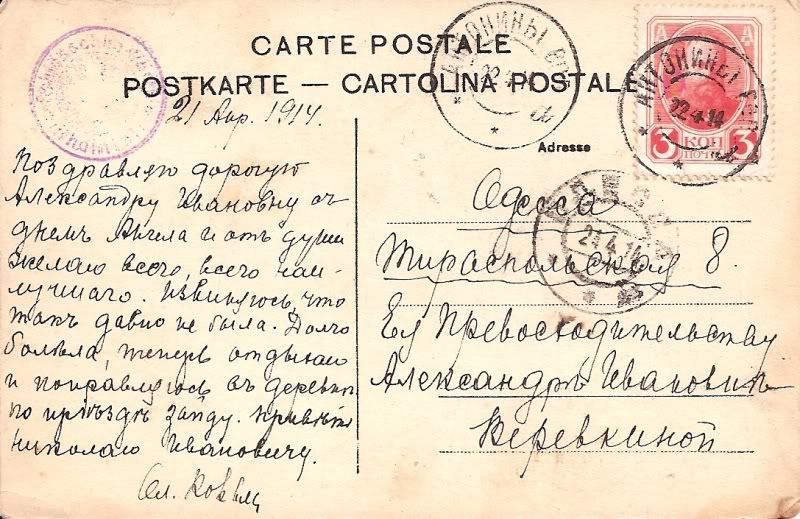 CARTE POSTALE
POSTKARTE — CARTOLINA POSTALE
21 Апр. 1914.
Поздравляю дорогую
Александру Ивановну съ
днемъ Ангела и отъ души
желаю всего, всего наи-
лучшаго. Извиняюсь, что
такъ давно не была. Долго
болѣла, теперь отдыхаю
и поправляюсь въ деревнѣ
по пріѣздѣ зайду. Привѣтъ
Николаю Ивановичу.
АНТОНИНЫ
22 4 14
АНТОНИНЫ
22.4.14
3 КОП 3
ПОЧТ
Adresse
ОДЕССА
24.4.14
Одесса
Тираспольская 8.
Ея Превосходительству
Александрѣ Ивановнѣ
Веревкиной